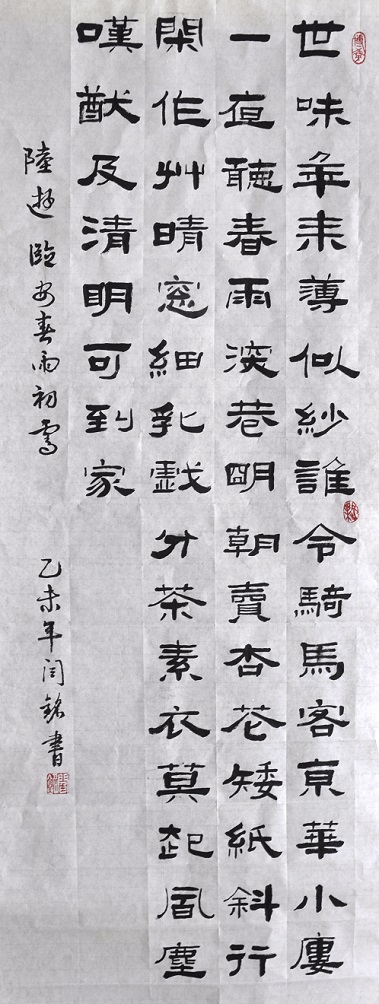 世味年来薄似紗誰令騎馬客京華小廔
一夜聽春雨深巷明朝賣杏花矮紙斜行
閑作艸晴窓細乳戲分茶素衣莫起風塵
嘆猷及清明可到家
陸遊臨安春雨初霽 乙未年闫銘書